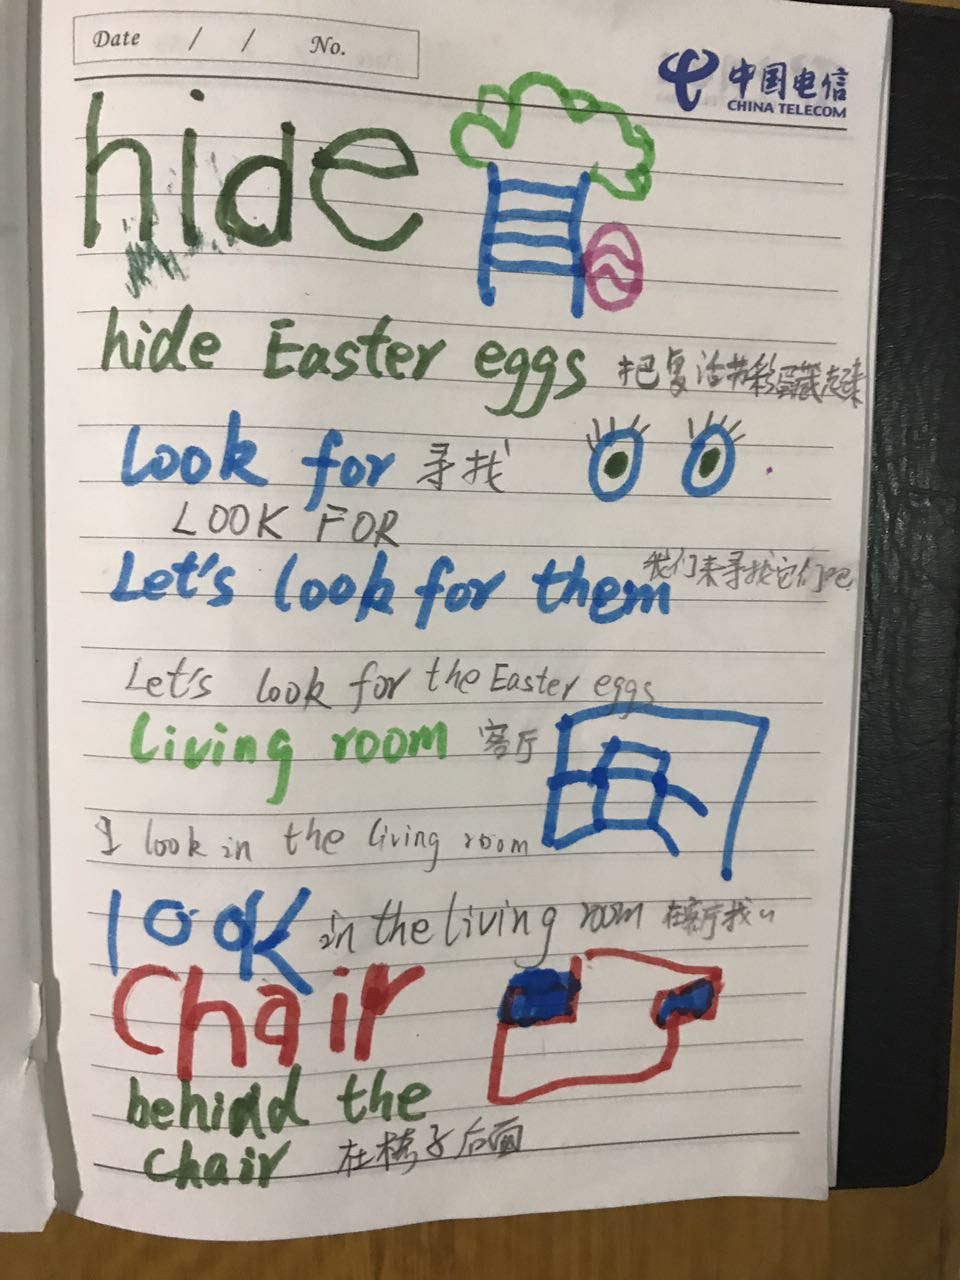 Date / / No.
中国电信
CHINA TELECOM
hide
hide Easter eggs 把复活节彩蛋藏起来
look for 寻找
LOOK FOR
Let's look for them 我们来寻找它们吧
Let's look for the Easter eggs
living room 客厅
I look in the living room
look in the living room 在客厅找
Chair
behind the
chair 在椅子后面